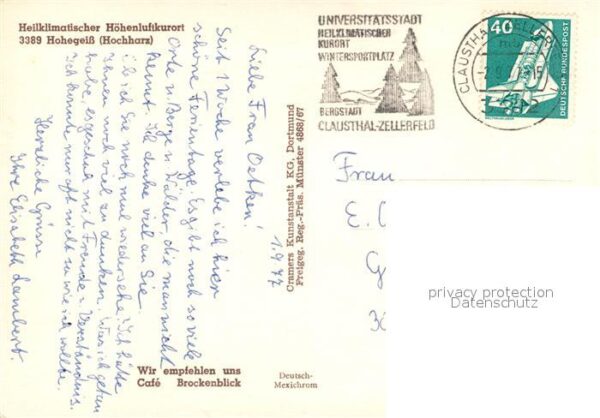 Heilklimatischer Höhenluftkurort
3389 Hohegeiß (Hochharz)
UNIVERSITÄTSSTADT
HEILKLIMATISCHER
KURORT
WINTERSPORTPLATZ
BERGSTADT
CLAUSTHAL-ZELLERFELD
CLAUSTHAL-ZELLERF
40
DEUTSCHE BUNDESPOST
1.9.77
Liebe Frau Oetken!
Seit 1 Woche verlebe ich hier
schöne Ferientage. Es gibt noch so viele
Orte u. Berge u. Wälder, die man nicht
kennt. Ich denke viel an Sie
ob ich Sie noch mal wiedersehe? Ich hätte
Ihnen noch viel zu danken. Was ich getan
habe, es geschah mit Freude u. Verständnis.
Ich konnte nur oft nicht so wie ich wollte.
Herzliche Grüße
Ihre Elisabeth Lambert.
Cramers Kunstanstalt KG, Dortmund
Freigeg. Reg.-Präs. Münster 4868/67
Frau
E.
G
privacy protection
Datenschutz
Wir empfehlen uns
Café Brockenblick
Deutsch-
Mexichrom